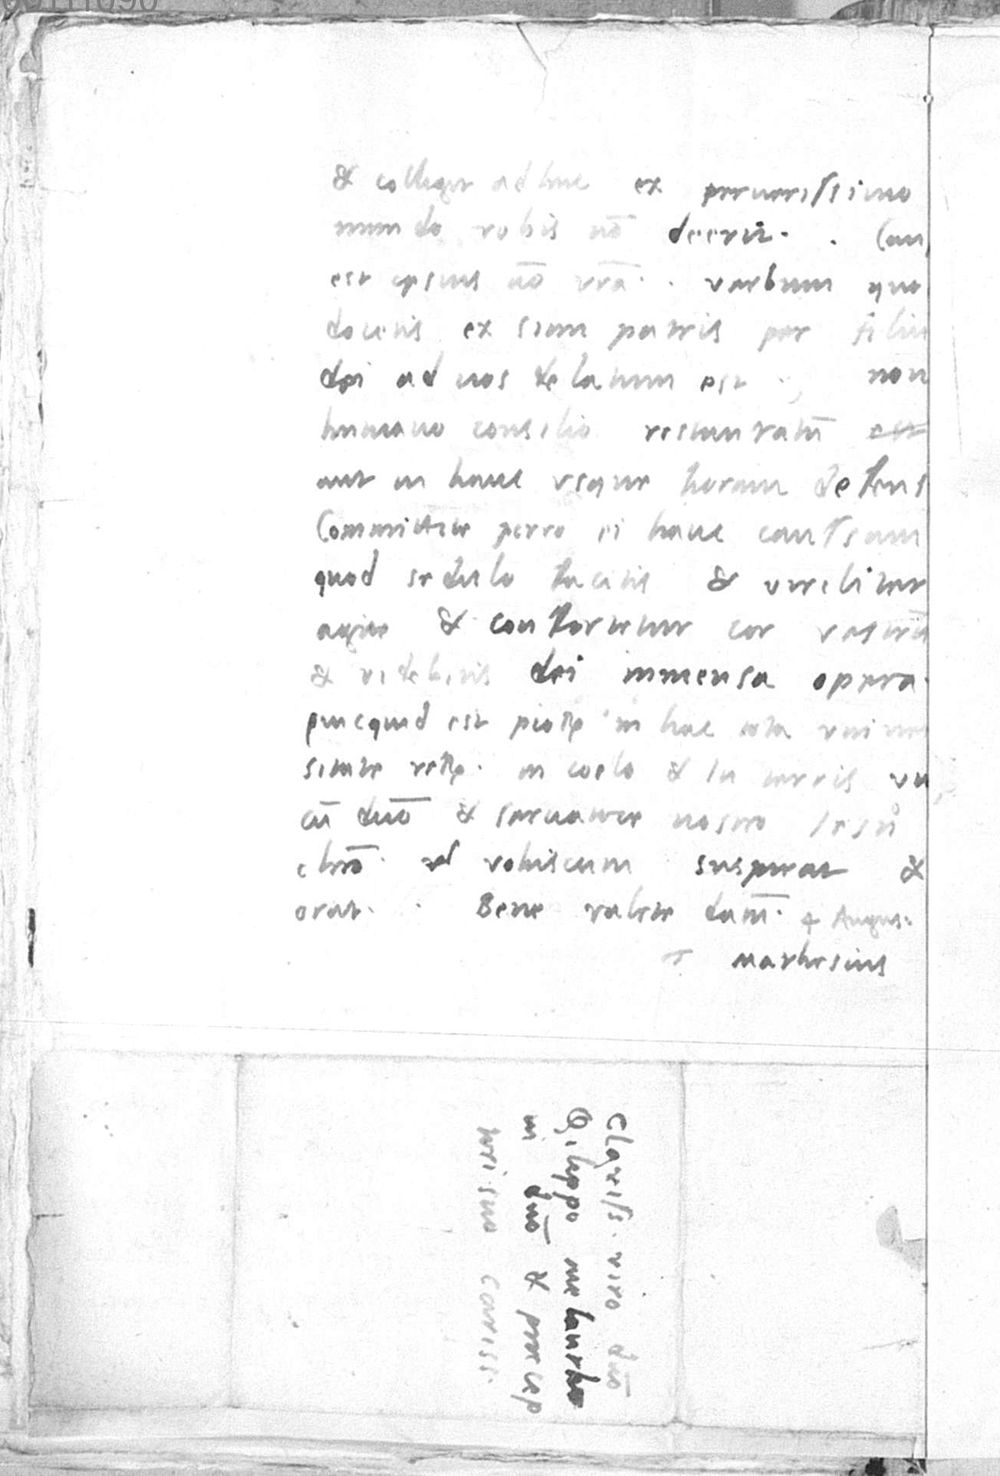 & collegit adhuc ex peruersissimo
mundo vobis nō deerit. Cau
est ipsius nō vrā. verbum quo
docetis ex sinu patris per filiu
dei ad nos delatum est non
humano consilio
aut in hanc vsque horam defens
Committite porro ei hanc caussam
quod sedulo facitis & viriliter
agite & confortetur cor vestrū
& videbitis dei immensa opera.
quicquid est in hac tota vniuer
sitate in coelo & in terris vn
cū dn̄o & seruatore nostro Iesu
chrō vobiscum suspirat &
orat. Bene valete 4 Augus.
Mathesius
Clariss. viro dn̄o
Philippo melantho
in dn̄o & praecep
tori suo cariss.